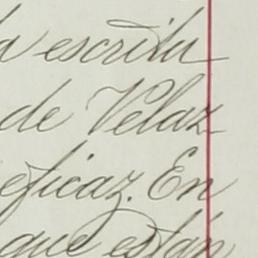 a escritu
de Velaz
eficaz. En
que están